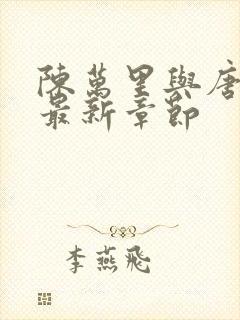 陳萬里與唐
最新章節
李燕飛